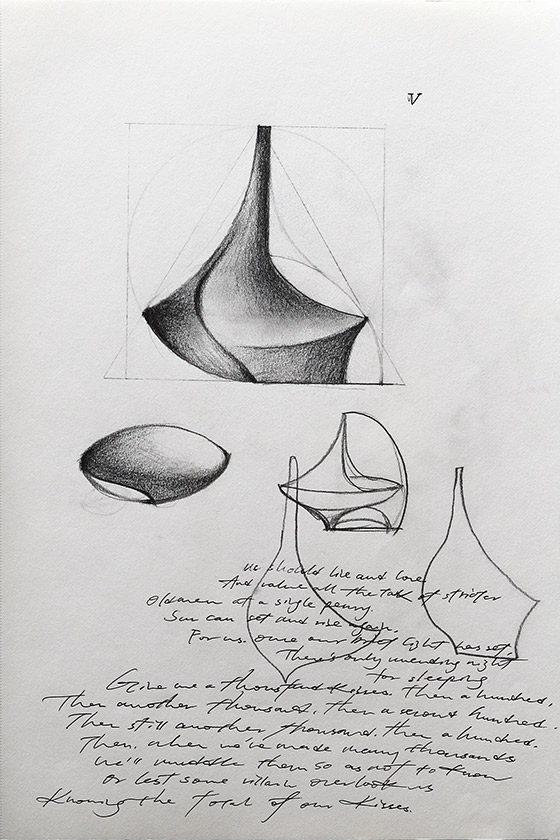 V
we should live and love
And value all the talk of stricter
Old men at a single penny.
Sun can set and rise again.
For us. once our brief light has set,
There's only unending night
for sleeping
Give me a thousand kisses. then a hundred,
Then another thousand. then a second hundred.
Then still another thousand. then a hundred.
Then. when we've made many thousands
we'll muddle them so as not to know
Or lest some villain overlook us
Knowing the total of our kisses.